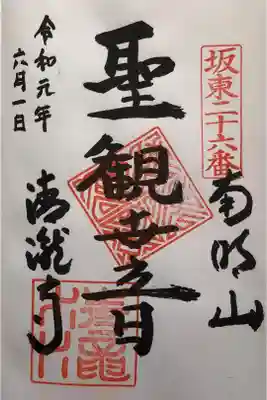 坂東二十六番
南明山
聖観世音
清瀧寺
令和元年
六月一日